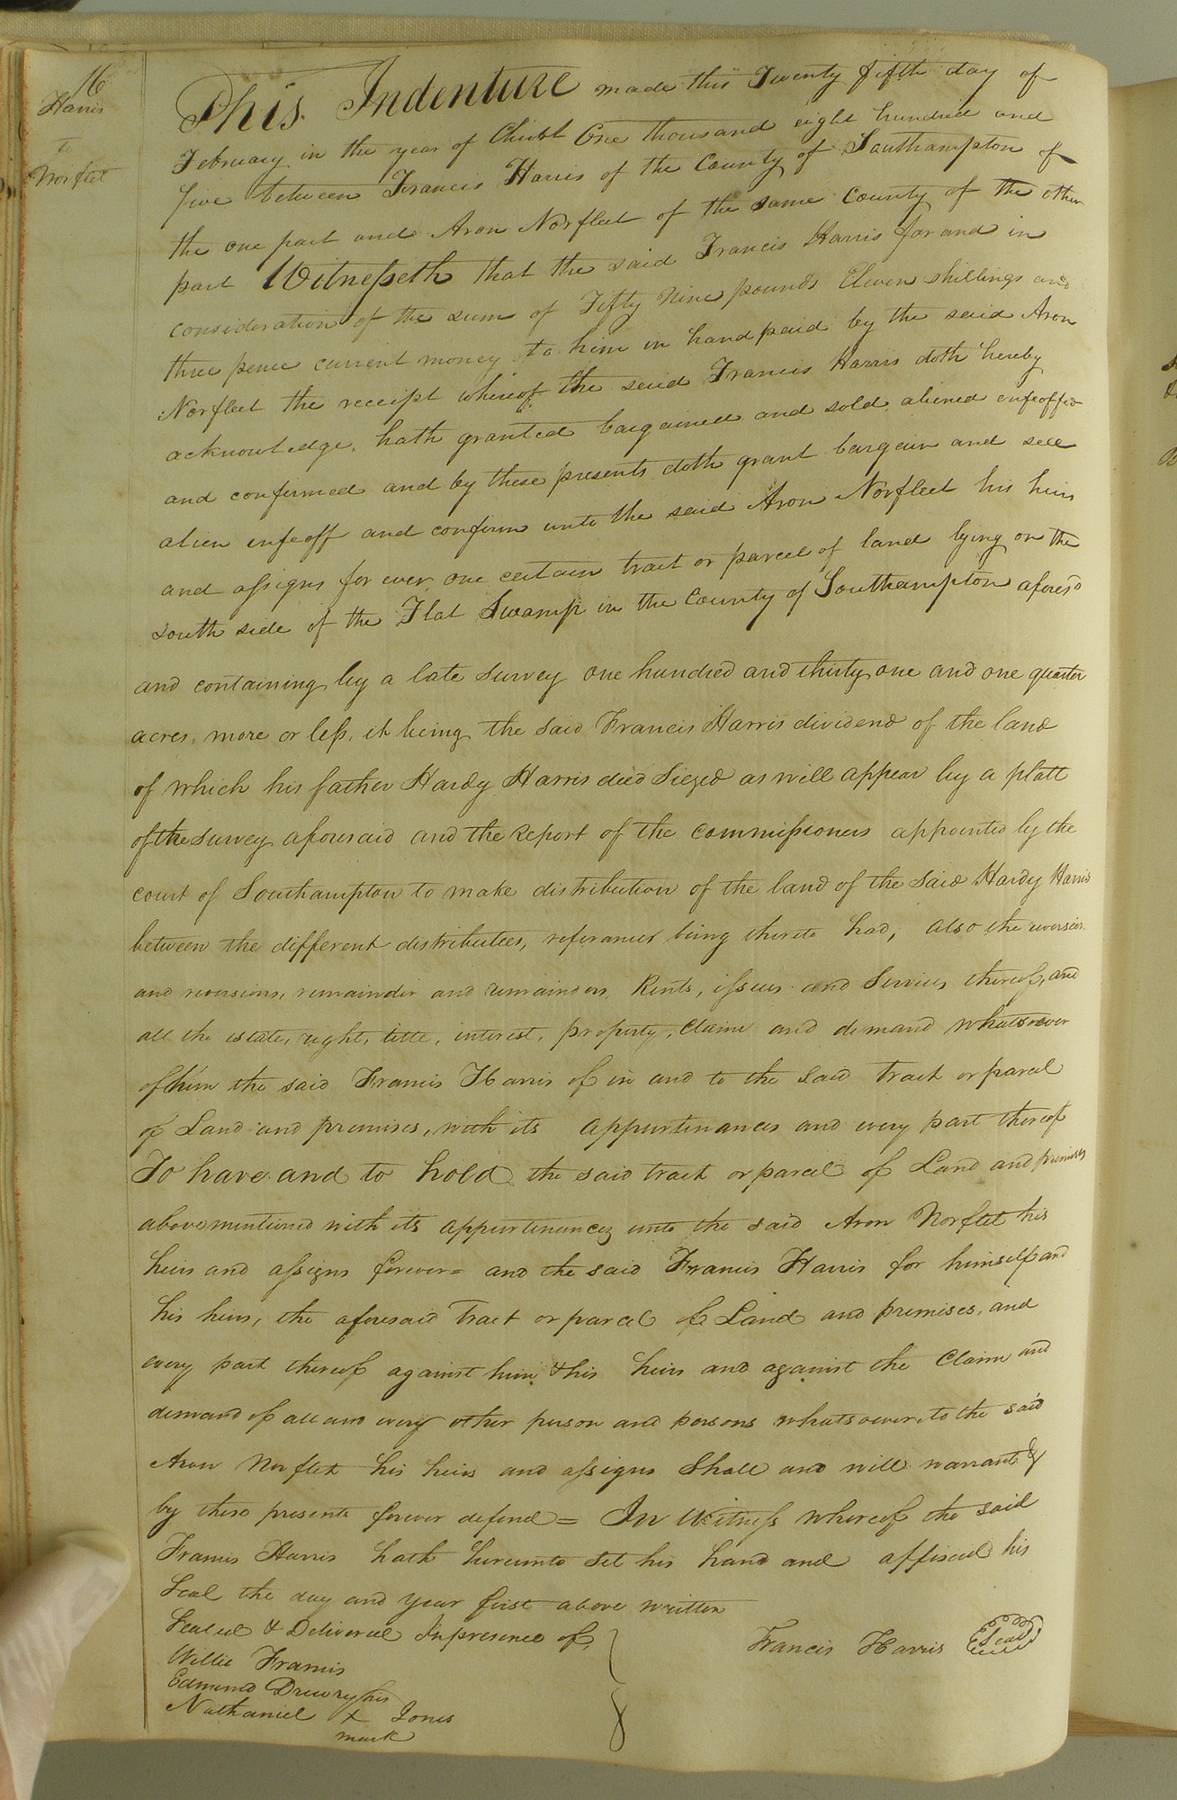 16
Harris
to
Norfleet
This Indenture made this Twenty fifth day of
February in the year of Christ One thousand eight hundred and
five between Francis Harris of the County of Southampton of
the one part and Aron Norfleet of the same County of the other
part Witnesseth that the said Francis Harris for and in
consideration of the sum of Fifty Nine pounds Eleven shillings and
three pence current money to him in hand paid by the said Aron
Norfleet the receipt whereof the said Francis Harris doth hereby
acknowledge, hath granted bargained and sold aliened enfeoffed
and confirmed and by these presents doth grant bargain and sell
alien enfeoff and confirm unto the said Aron Norfleet his heirs
and assigns for ever one certain tract or parcel of land lying on the
south side of the Flat Swamp in the County of Southampton aforesd
and containing by a late Survey one hundred and thirty one and one quarter
acres, more or less, it being the said Francis Harris dividend of the land
of which his father Hardy Harris died Siezed as will appear by a platt
of the survey aforesaid and the Report of the commissioners appointed by the
court of Southampton to make distribution of the land of the said Hardy Harris
between the different distributees, referances being thereto had, also the reversion
and reversions, remainder and remainders, Rents, issues and Services thereof, and
all the estate, right, title, interest, property, claim and demand whatsoever
of him the said Francis Harris of in and to the said tract or parcel
of Land and premises, with its appurtinances and every part thereof
To have and to hold the said tract or parcel of Land and premises
abovementioned with its appurtinances unto the said Aron Norflet his
heirs and assigns forever = and the said Francis Harris for himself and
his heirs, the aforesaid Tract or parcel of Land and premises, and
every part thereof against him & his heirs and against the Claim and
demand of all and every other person and persons whatsoever to the said
Aron Norflet his heirs and assigns Shall and will warrant &
by these presents forever defend = In Witness whereof the said
Francis Harris hath hereunto set his hand and affixed his
Seal the day and year first above written
Sealed & Delivered In presence of
Francis Harris Seal
Willie Francis
Edmund Drewry
his
Nathaniel x Jones
mark